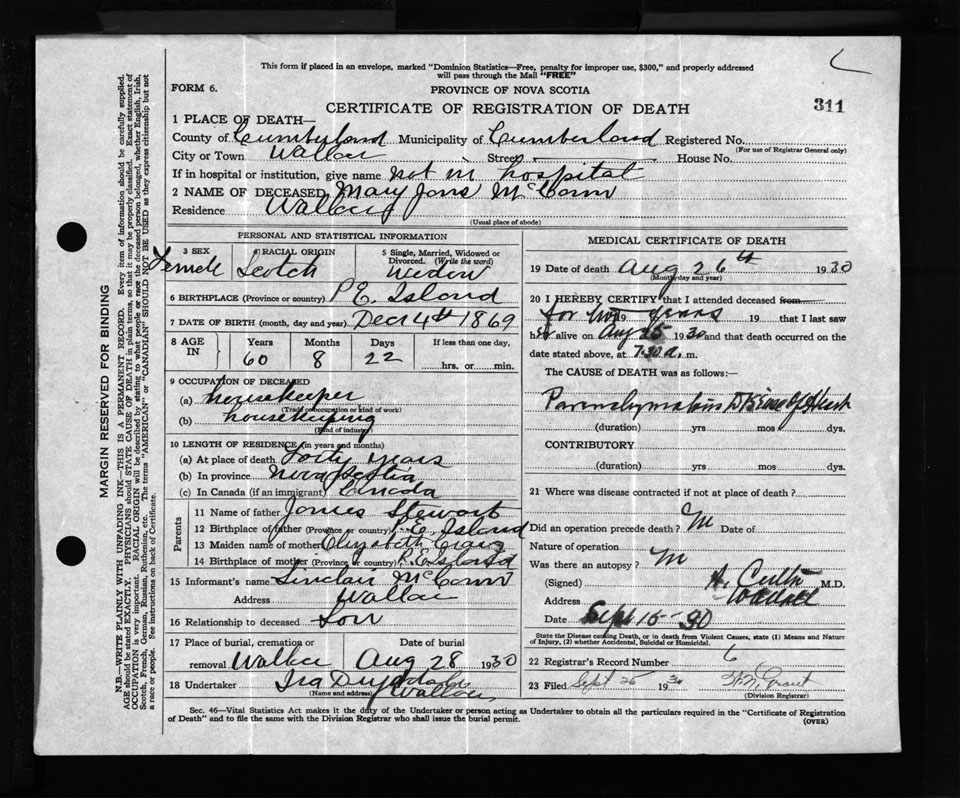 This form if placed in an envelope, marked "Dominion Statistics—Free, penalty for improper use, $300," and properly addressed
will pass through the Mail "FREE"
FORM 6.
PROVINCE OF NOVA SCOTIA
CERTIFICATE OF REGISTRATION OF DEATH
311
1 PLACE OF DEATH—
County of Cumberland Municipality of Cumberland Registered No.
(For use of Registrar General only)
City or Town Wallace Street House No.
If in hospital or institution, give name not in hospital
2 NAME OF DECEASED Mary Jane McCann
Residence Wallace
(Usual place of abode)
PERSONAL AND STATISTICAL INFORMATION
3 SEX Female
4 RACIAL ORIGIN Scotch
5 Single, Married, Widowed or Divorced. (Write the word) Widow
6 BIRTHPLACE (Province or country) P E. Island
7 DATE OF BIRTH (month, day and year) Dec 4th 1869
8 AGE IN Years Months Days If less than one day,
60 8 22 hrs. or min.
9 OCCUPATION OF DECEASED
(a) housekeeper
(Trade occupation or kind of work)
(b) housekeeping
(Kind of industry)
10 LENGTH OF RESIDENCE (in years and months)
(a) At place of death Forty years
(b) In province Nova Scotia
(c) In Canada (if an immigrant) Canada
Parents
11 Name of father James Stewart
12 Birthplace of father (Province or country) P.E. Island
13 Maiden name of mother Elizabeth Craig
14 Birthplace of mother (Province or country) P.E. Island
15 Informant's name Sinclair McCann
Address Wallace
16 Relationship to deceased Son
17 Place of burial, cremation or removal Wallace
Date of burial Aug 28 1930
18 Undertaker Ira
(Name and address) Wallace
MEDICAL CERTIFICATE OF DEATH
19 Date of death Aug 26th 1930
(Month, day and year)
20 I HEREBY CERTIFY that I attended deceased from
for two years 19 19 that I last saw
h alive on Aug 25 1930 and that death occurred on the
date stated above, at 7.30 a. m.
The CAUSE of DEATH was as follows:—
Parenchymatous Disease of Heart
(duration) yrs mos dys.
CONTRIBUTORY
(duration) yrs mos dys.
21 Where was disease contracted if not at place of death?
Did an operation precede death? Date of
Nature of operation
Was there an autopsy?
(Signed) M.D.
Address Wallace
Date Sept 15 - 30
State the Disease causing Death, or in death from Violent Causes, state (1) Means and Nature
of Injury, (2) whether Accidental, Suicidal or Homicidal.
22 Registrar's Record Number 6
23 Filed Sept 25 1930 Grant
(Division Registrar)
Sec. 46—Vital Statistics Act makes it the duty of the Undertaker or person acting as Undertaker to obtain all the particulars required in the "Certificate of Registration
of Death" and to file the same with the Division Registrar who shall issue the burial permit.
(OVER)
MARGIN RESERVED FOR BINDING
N.B.—WRITE PLAINLY WITH UNFADING INK—THIS IS A PERMANENT RECORD. Every item of information should be carefully supplied.
AGE should be stated EXACTLY. PHYSICIANS should STATE CAUSE OF DEATH in plain terms, so that it may be properly classified. Exact statement of
OCCUPATION is very important. RACIAL ORIGIN will be described by stating to what people or race the deceased person belonged, whether English, Irish,
Scotch, French, German, Russian, Ruthenian, etc. The terms "AMERICAN" or "CANADIAN" SHOULD NOT BE USED as they express citizenship but not
a race or people. See instructions on back of Certificate.